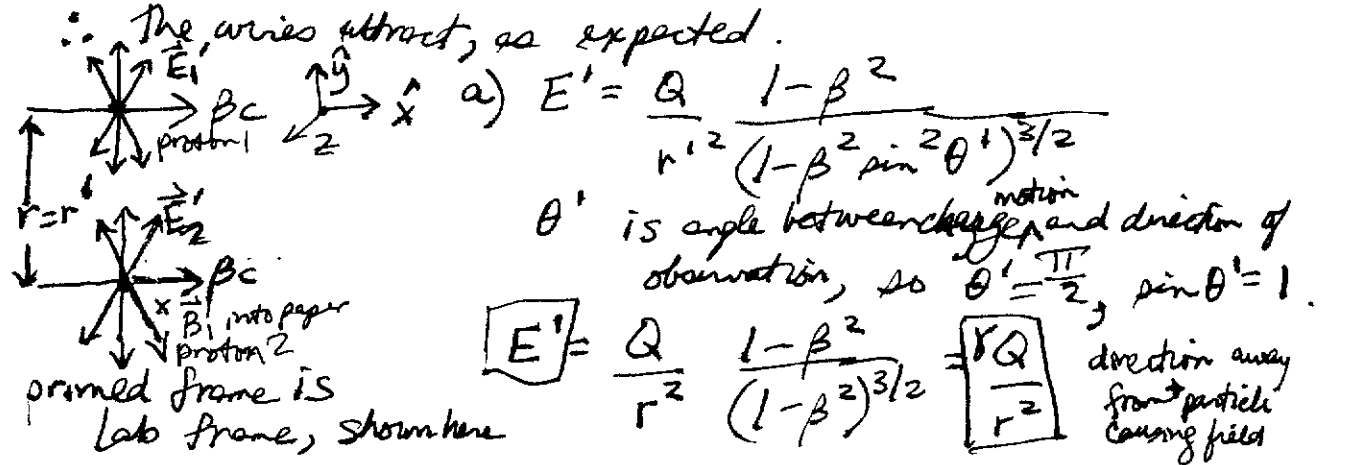 ∴ The wires attract, as expected.
E⃗₁'
βc
proton 1
ŷ
x̂
z
a) E' = Q/r'² (1-β²)/(1-β² sin²θ')^3/2
r=r'
E⃗₂'
βc
x B⃗₁' into paper
proton 2
primed frame is
Lab frame, shown here
θ' is angle between charge motion and direction of
observation, so θ' = π/2, sin θ' = 1.
E' = Q/r² (1-β²)/(1-β²)^3/2 = γQ/r²
direction away
from particle
causing field